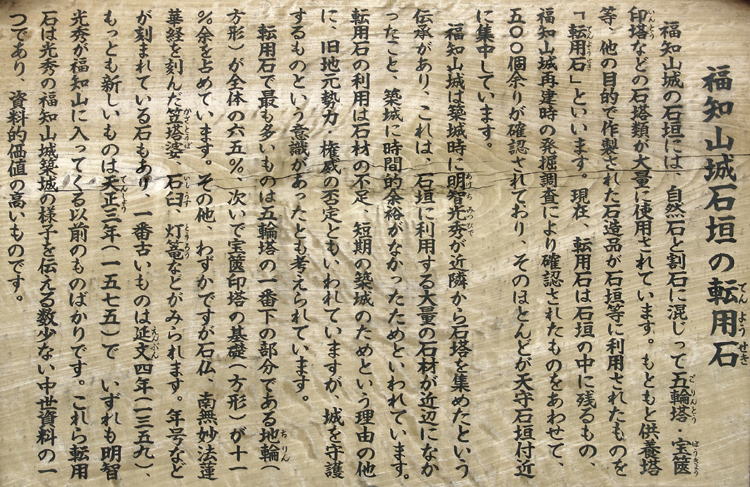 福知山城石垣の転用石
福知山城の石垣には、自然石と割石に混じって五輪塔・宝篋
印塔などの石塔類が大量に使用されています。もともと供養塔
等、他の目的で作製された石造品が石垣等に利用されたものを
「転用石」といいます。現在、転用石は石垣の中に残るもの、
福知山城再建時の発掘調査により確認されたものをあわせて、
五〇〇個余りが確認されており、そのほとんどが天守石垣付近
に集中しています。
福知山城は築城時に明智光秀が近隣から石塔を集めたという
伝承があり、これは、石垣に利用する大量の石材が近辺になか
ったこと、築城に時間的余裕がなかったためといわれています。
転用石の利用は石材の不足、短期の築城のためという理由の他
に、旧地元勢力・権威の否定ともいわれていますが、城を守護
するものという意識があったとも考えられています。
転用石で最も多いものは五輪塔の一番下の部分である地輪(
方形)が全体の六五%、次いで宝篋印塔の基礎(方形)が十一
%余を占めています。その他、わずかですが石仏、南無妙法蓮
華経を刻んだ笠塔婆、石臼、灯篭などがみられます。年号など
が刻まれている石もあり、一番古いものは延文四年(一三五九)、
もっとも新しいものは天正三年(一五七五)で、いずれも明智
光秀が福知山に入ってくる以前のものばかりです。これら転用
石は光秀の福知山城築城の様子を伝える数少ない中世資料の一
つであり、資料的価値の高いものです。